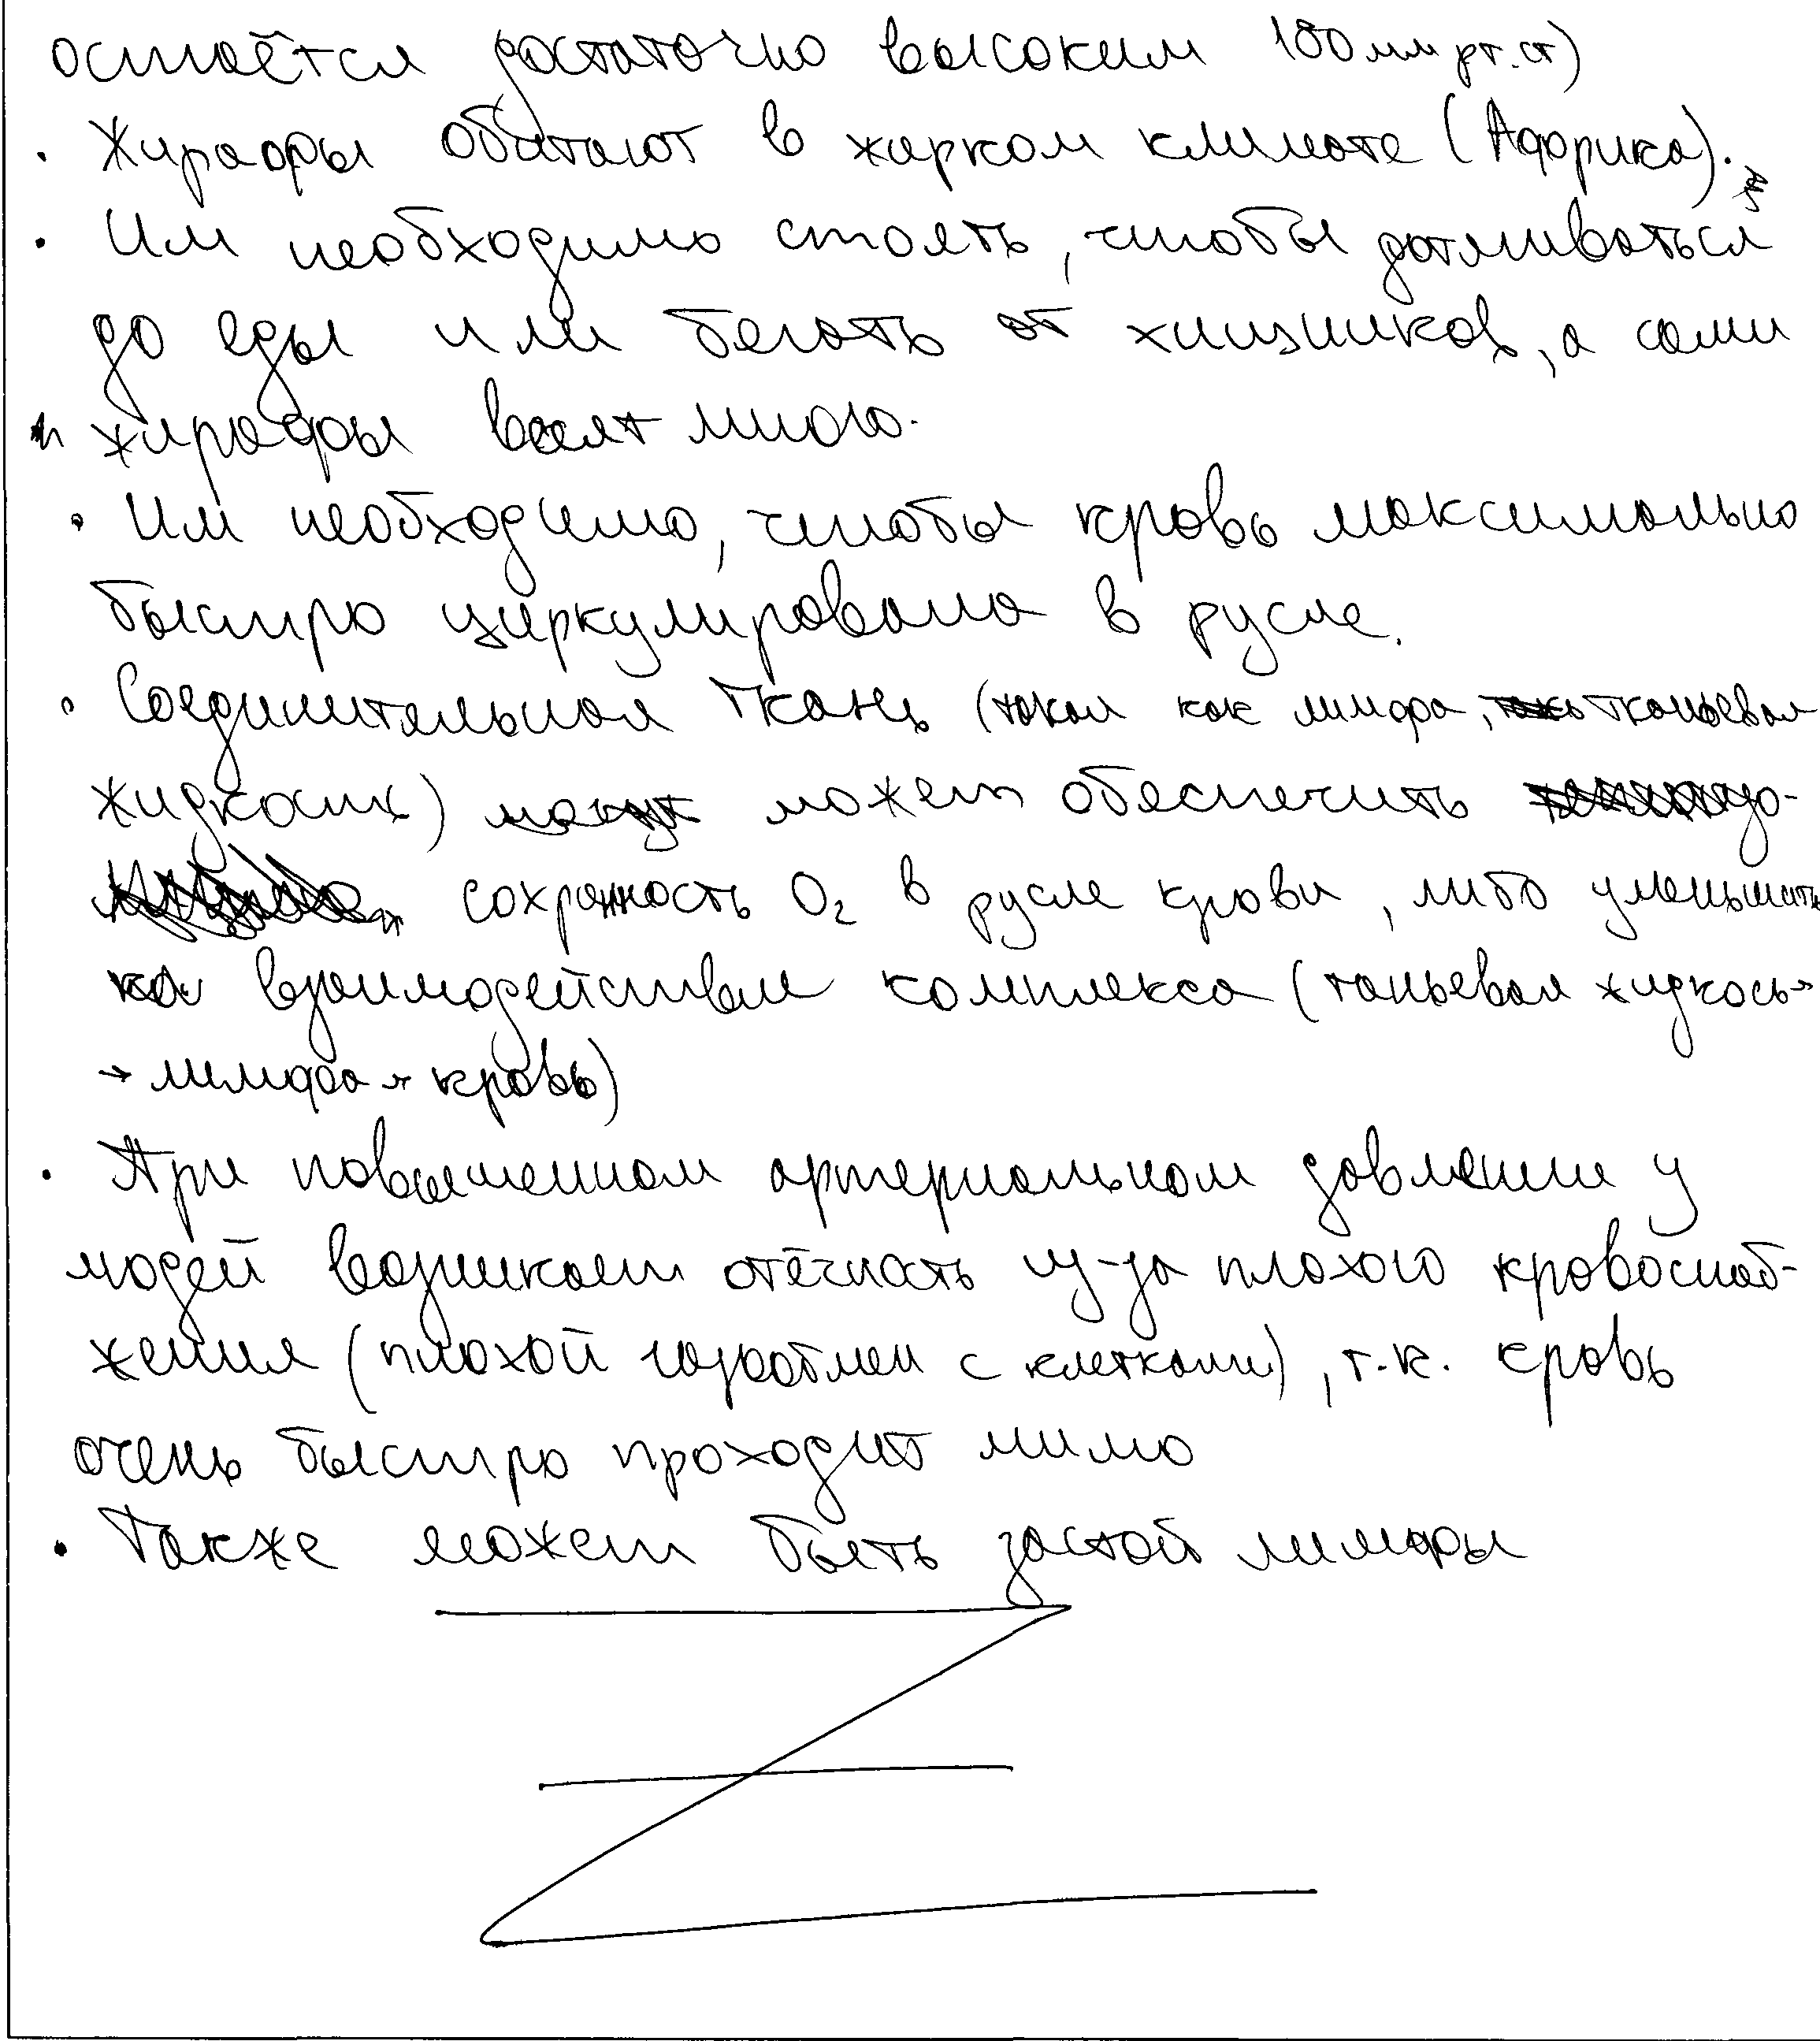 остаётся достаточно высоким 180 мм рт.ст)
· Жирафы обитают в жарком климате (Африка).
· Им необходимо стоять, чтобы дотягиваться
до еды или бегать от хищников, а сами
жирафы весят много.
· Им необходимо, чтобы кровь максимально
быстро циркулировала в русле.
· Соединительная ткань (такая как лимфа, тканевая
жидкость) может обеспечить
сохранность O₂ в русле крови, либо уменьшить
взаимодействие комплекса (таньевая жидкось→
→ лимфа → кровь)
· При повышенном артериальном давлении у
людей возникает отёчность из-за плохого кровоснаб-
жения (плохой газообмен с клетками), т.к. кровь
очень быстро проходит мимо
· Также может быть застой лимфы